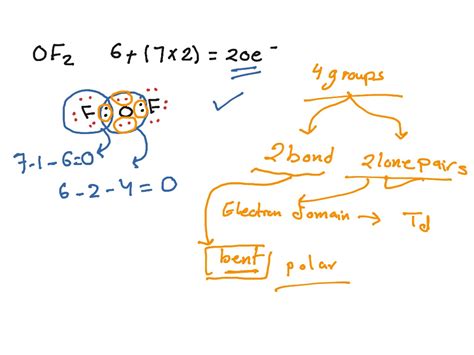 OF₂ 6+(7×2) = 20e⁻
F O F
7-1-6=0
6-2-4=0
4 groups
2 bond 2 lone pairs
Electron domain → Td
bent polar